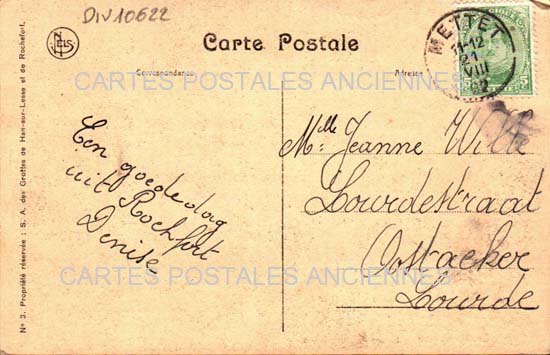 DIV10622
NELS
Carte Postale
Correspondance
Adresse
METTET
11-12
21
VIII
CARTES POSTALES ANCIENNES
Een goededag
uit Rochfort
Denise
Mlle Jeanne Wille
Lourdestraat
Oostacker
Lourde
CARTES POSTALES ANCIENNES
Nº 3. Propriété réservée : S. A. des Grottes de Han-sur-Lesse et de Rochefort.